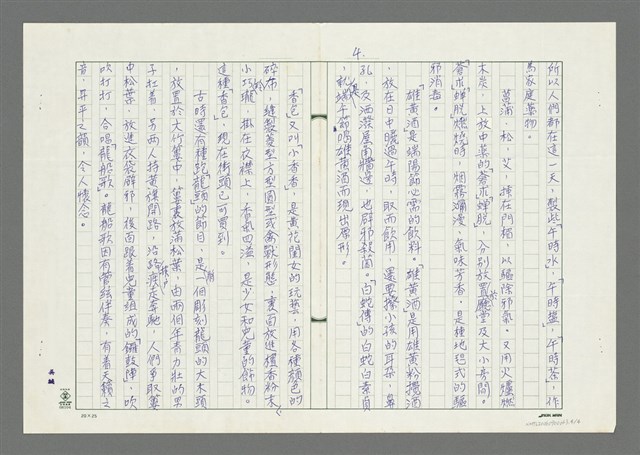 4.
所以人們都在這一天，製些「午時水」，「午時盐」，「午時茶」，作
為家庭藥物。
菖蒲、松、艾，掛在門楣，以驅除邪氣。又用火爐燃
木炭，上放中藥的「蒼朮蟬脫」，分別放置於廳堂及大小房間。
「蒼朮蟬脫」燃燒時，烟霧瀰漫，氣味芳香，是種地毯式的驅
邪消毒。
「雄黃酒」是端陽節必需的飲料。「雄黃酒」是用雄黃粉攪酒
，放在日中曬過午時，取而飲用，還要擦小孩的耳朵，鼻
孔，及洒潑屋角牆邊，也辟邪殺菌。「白蛇傳」的白蛇白素貞
，就是端午節喝雄黃酒而現出原形。
「香包」又叫「小香香」，是黃花閨女的玩藝，用各種顏色的
碎布，縫製菱型方型圓型或禽獸形態，裏面放進檀香粉末，
小巧玲瓏，掛在衣襟上，香氣四溢，是少女和兒童的飾物。
這種「香包」，現在街頭已可買到。
古時還有種「跎龍頭」的節目，是用一個彫刻龍頭的大木頭
，放置於大竹簍中，簍裏放蒲松葉，由兩個年青力壯的男
子扛着，另兩人持黃傑開路，沿路挨戶疾走奔馳，人們爭取簍
中松葉，放進衣袋辟邪，後面跟着兒童組成的「鑼鼓陣」，吹
吹打打，合唱「龍船歌」。龍船歌因有管絃伴奏，有着天籟之
音，昇平之韻，令人懷念。
20×25